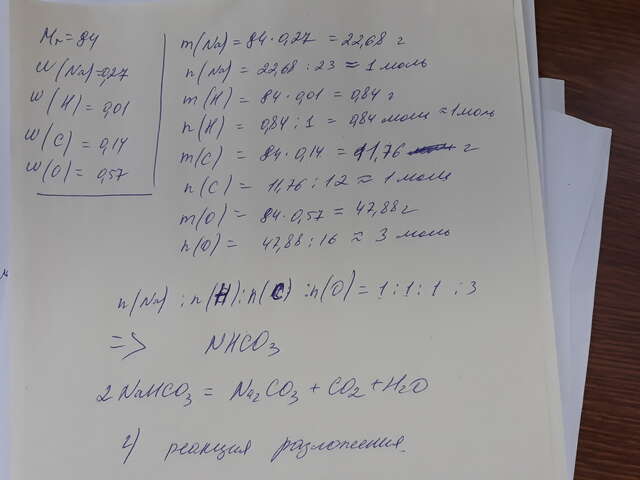 Mr = 84
w(Na) = 0,27
w(H) = 0,01
w(C) = 0,14
w(O) = 0,57
m(Na) = 84 · 0,27 = 22,68 г
n(Na) = 22,68 : 23 ≈ 1 моль
m(H) = 84 · 0,01 = 0,84 г
n(H) = 0,84 : 1 = 0,84 моль ≈ 1 моль
m(C) = 84 · 0,14 = 11,76 г
n(C) = 11,76 : 12 ≈ 1 моль
m(O) = 84 · 0,57 = 47,88 г
n(O) = 47,88 : 16 ≈ 3 моль
n(Na) : n(H) : n(C) : n(O) = 1 : 1 : 1 : 3
=> NHCO₃
2 NaHCO₃ = Na₂CO₃ + CO₂ + H₂O
г) реакция разложения.